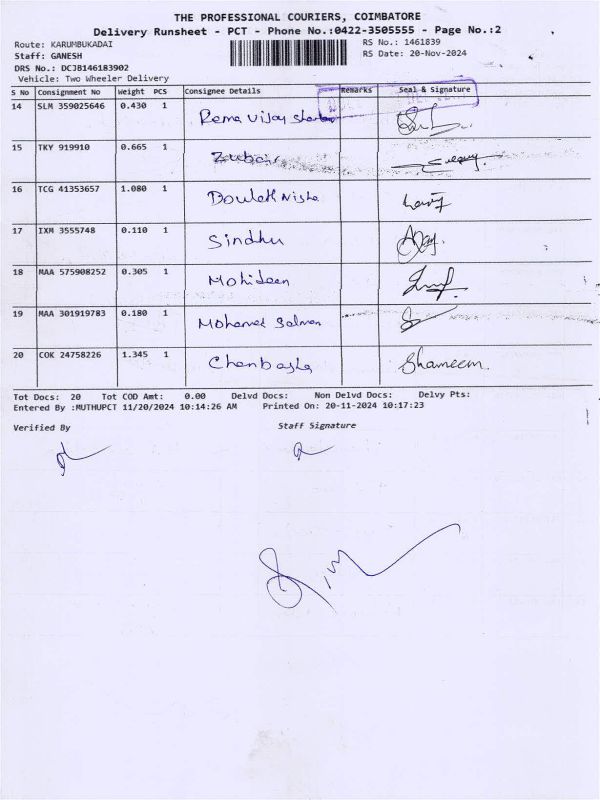 THE PROFESSIONAL COURIERS, COIMBATORE
Delivery Runsheet - PCT - Phone No.:0422-3505555 - Page No.:2
Route: KARUMBUKADAI
RS No.: 1461839
Staff: GANESH
RS Date: 20-Nov-2024
DRS No.: DCJB146183902
Vehicle: Two Wheeler Delivery
S No Consignment No Weight PCS Consignee Details Remarks Seal & Signature
14 SLM 359025646 0.430 1 Rema Vijay
15 TKY 919910 0.665 1 Zubair
16 TCG 41353657 1.080 1 Doulath Nisha
17 IXM 3555748 0.110 1 Sindhu
18 MAA 575908252 0.305 1 Mohideen
19 MAA 301919783 0.180 1 Mohamed Salman
20 COK 24758226 1.345 1 Chanbasha Shameem.
Tot Docs: 20 Tot COD Amt: 0.00 Delvd Docs: Non Delvd Docs: Delvy Pts:
Entered By :MUTHUPCT 11/20/2024 10:14:26 AM Printed On: 20-11-2024 10:17:23
Verified By Staff Signature